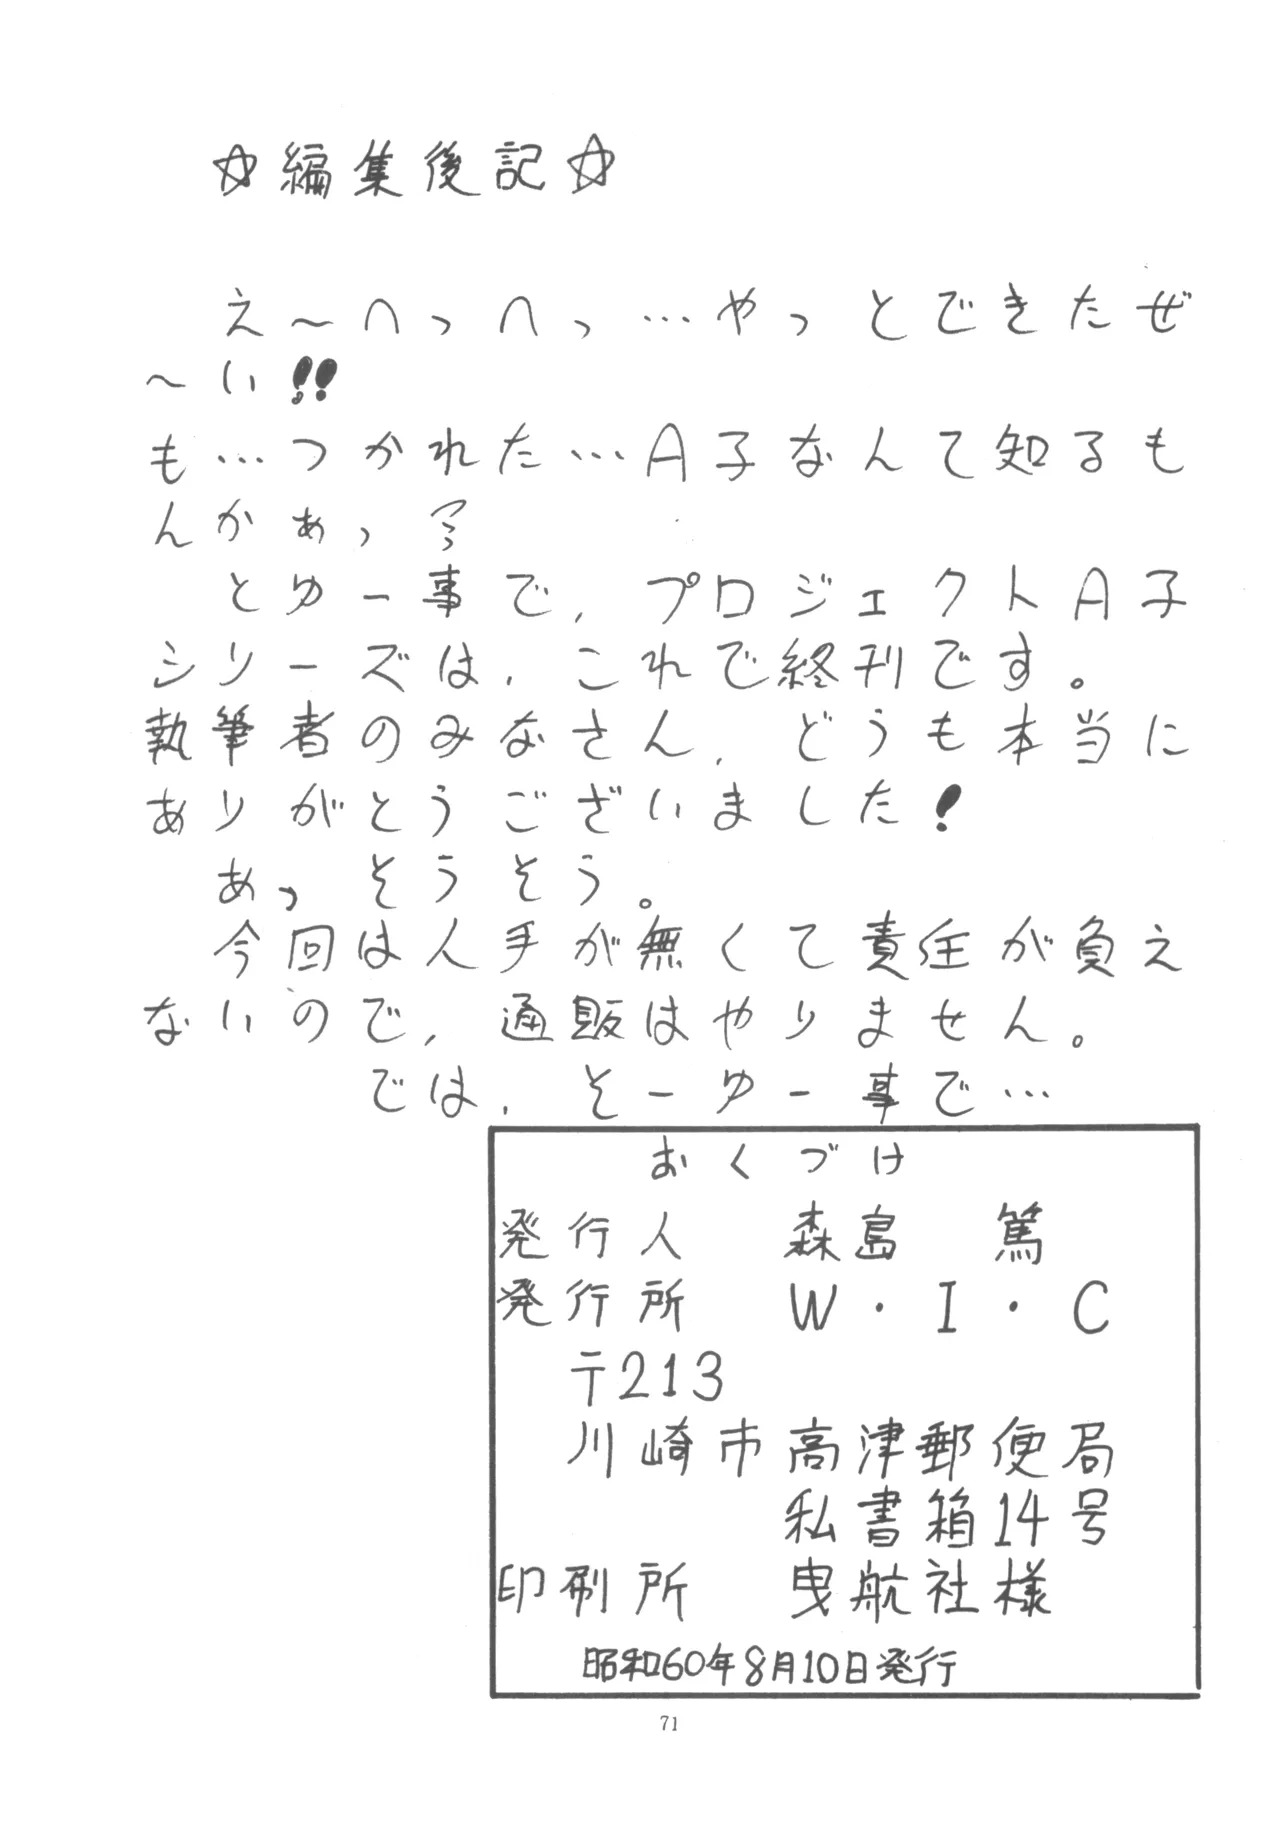 ☆編集後記☆
え〜へっへっ…やっとできたぜ
〜い!!
も…つかれた…A子なんて知るも
んかぁっ
とゆー事で、プロジェクトA子
シリーズは、これで終刊です。
執筆者のみなさん、どうも本当に
ありがとうございました!
あっ、そうそう。
今回は人手が無くて責任が負え
ないので、通販はやりません。
では、そーゆー事で…
おくづけ
発行人 森島 篤
発行所 W・I・C
〒213
川崎市高津郵便局
私書箱14号
印刷所 曳航社様
昭和60年8月10日発行
71